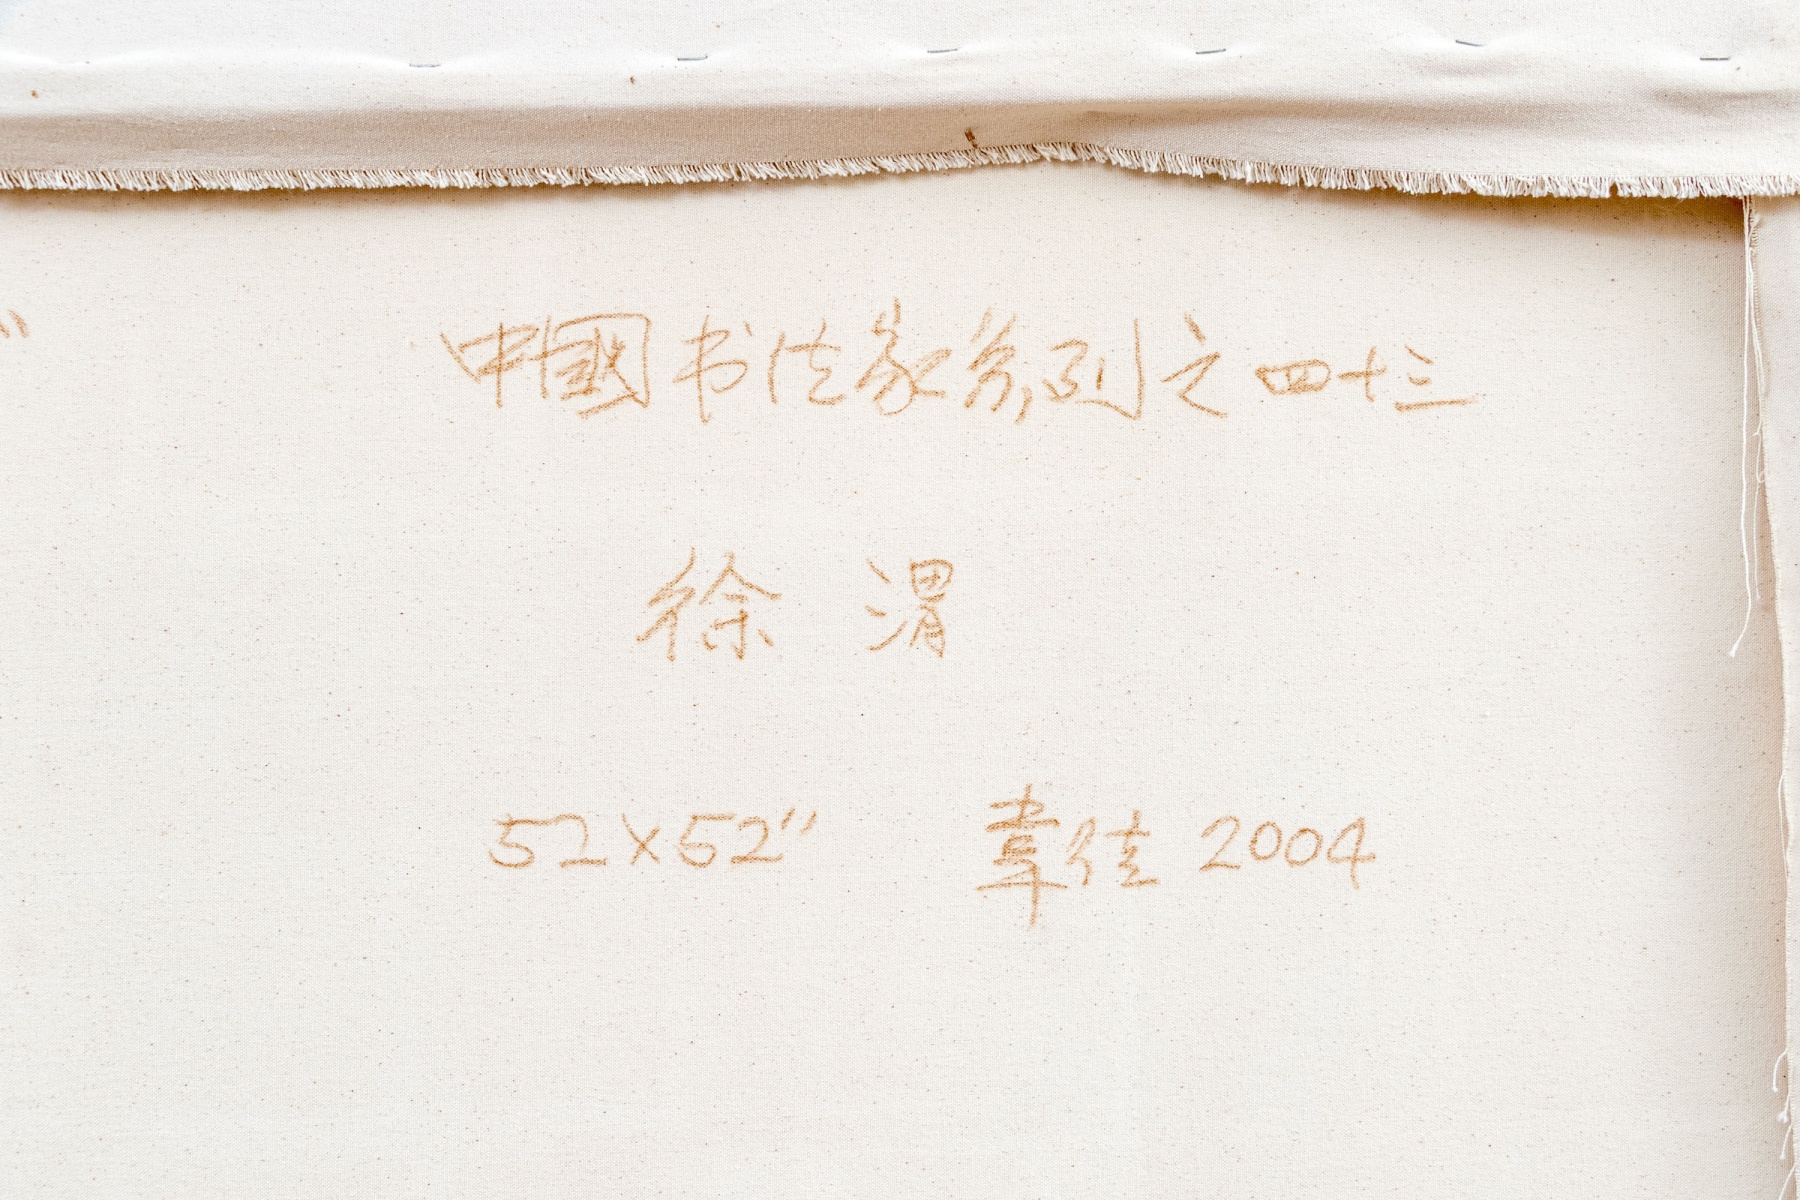 "
中國书法家系列之四十三
徐 渭
52×52" 韋佳 2004